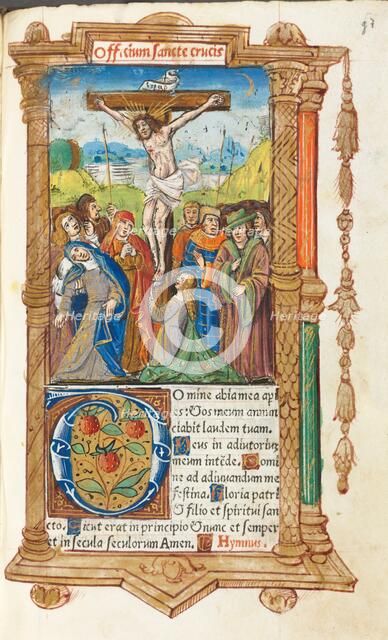 97
Officium sancte crucis
INRI
Domine labia mea api
es: Et os meum annun
ciabit laudem tuam.
Deus in adiutoriu
meum intēde. Domi
ne ad adiuuandum me
festina. Gloria patri
Et filio et spiritui san
cto. Sicut erat in principio Et nunc et semper
et in secula seculorum Amen. Hymnus.
Heritage Images